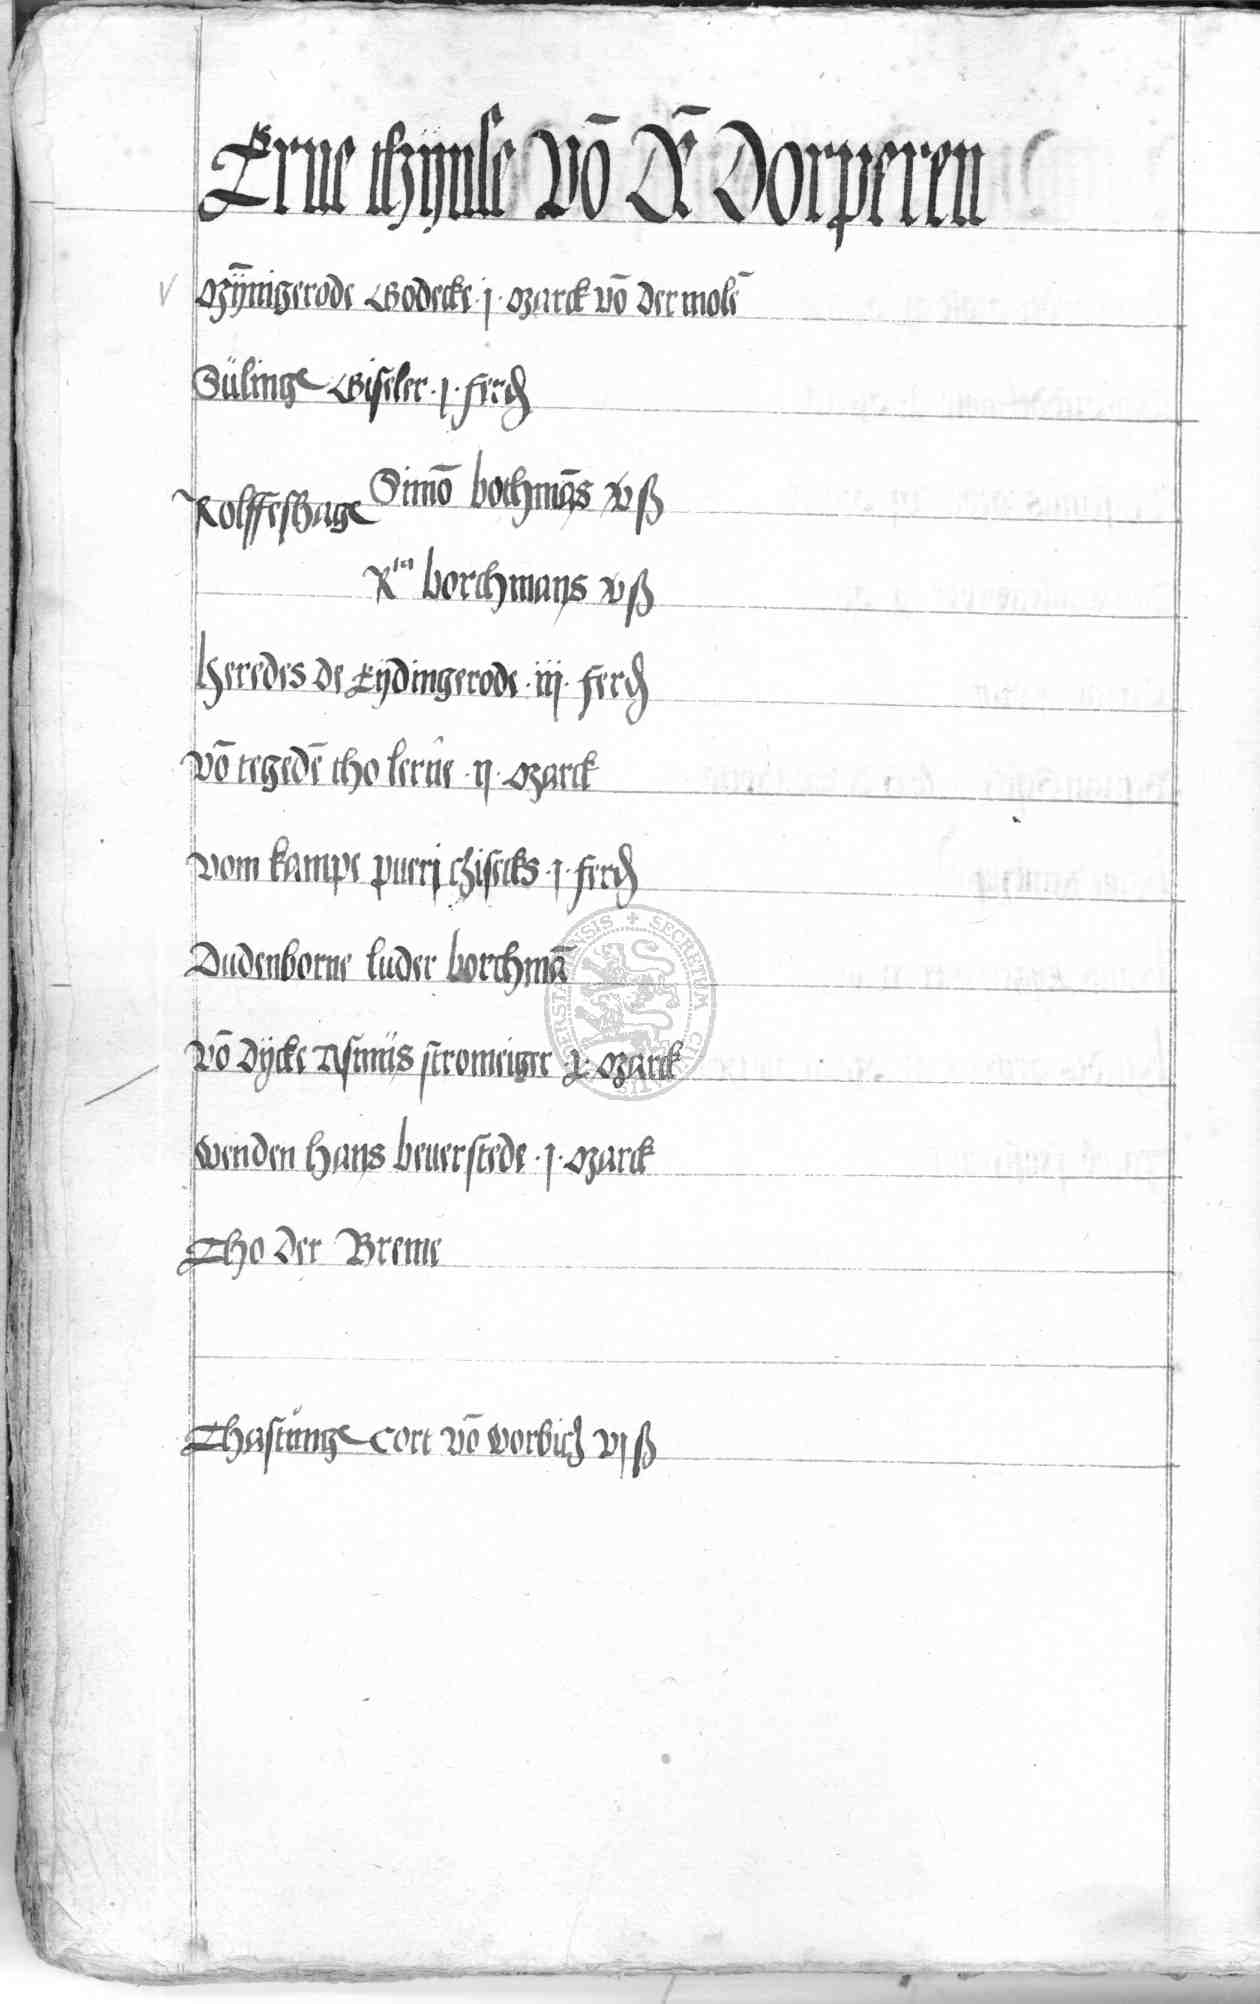 Erue thzynse vō Dē Dorperen
Mȳnigerode Godecke · j · Marck vō der molē
Sülinge Giseler · j · ferd
Rolffeshage Simō bothmās v ß
borchmans v ß
heredes de Eydingerode · iij · ferd
vō tegedē tho lerne · ij · Marck
vom kampe puerj Ciseks · j · ferd
Dudenborne luder borchmā
vō Dycke Asmüs stromeiger · x · Marck
Wenden Hans beuerstede · j · Marck
Tho der Breme
Thastunge Cort vō Worbich vj ß